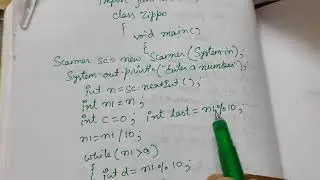 import
class Zippo
{ void main()
{
Scanner sc = new Scanner (System.in);
System.out.println("Enter a number");
int n = sc.nextInt();
int n1 = n;
int c = 0; int last = n1%10;
n1 = n1/10;
while (n1>9)
{ int d = n1%10;